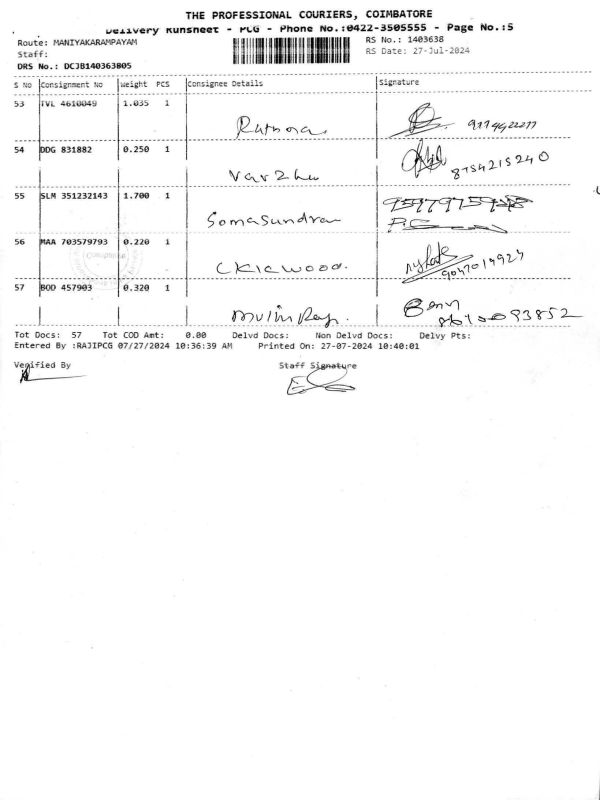 THE PROFESSIONAL COURIERS, COIMBATORE
Delivery Runsheet - PCG - Phone No.:0422-3505555 - Page No.:5
Route: MANIYAKARAMPAYAM
RS No.: 1403638
Staff:
RS Date: 27-Jul-2024
DRS No.: DCJB140363805
S No Consignment No Weight PCS Consignee Details Signature
53 TVL 4610049 1.035 1
54 DDG 831882 0.250 1
Varzhu 8754215240
55 SLM 351232143 1.700 1
Somasundram
56 MAA 703579793 0.220 1
9047014924
57 BOD 457903 0.320 1
Tot Docs: 57 Tot COD Amt: 0.00 Delvd Docs: Non Delvd Docs: Delvy Pts:
Entered By :RAJIPCG 07/27/2024 10:36:39 AM Printed On: 27-07-2024 10:40:01
Verified By Staff Signature